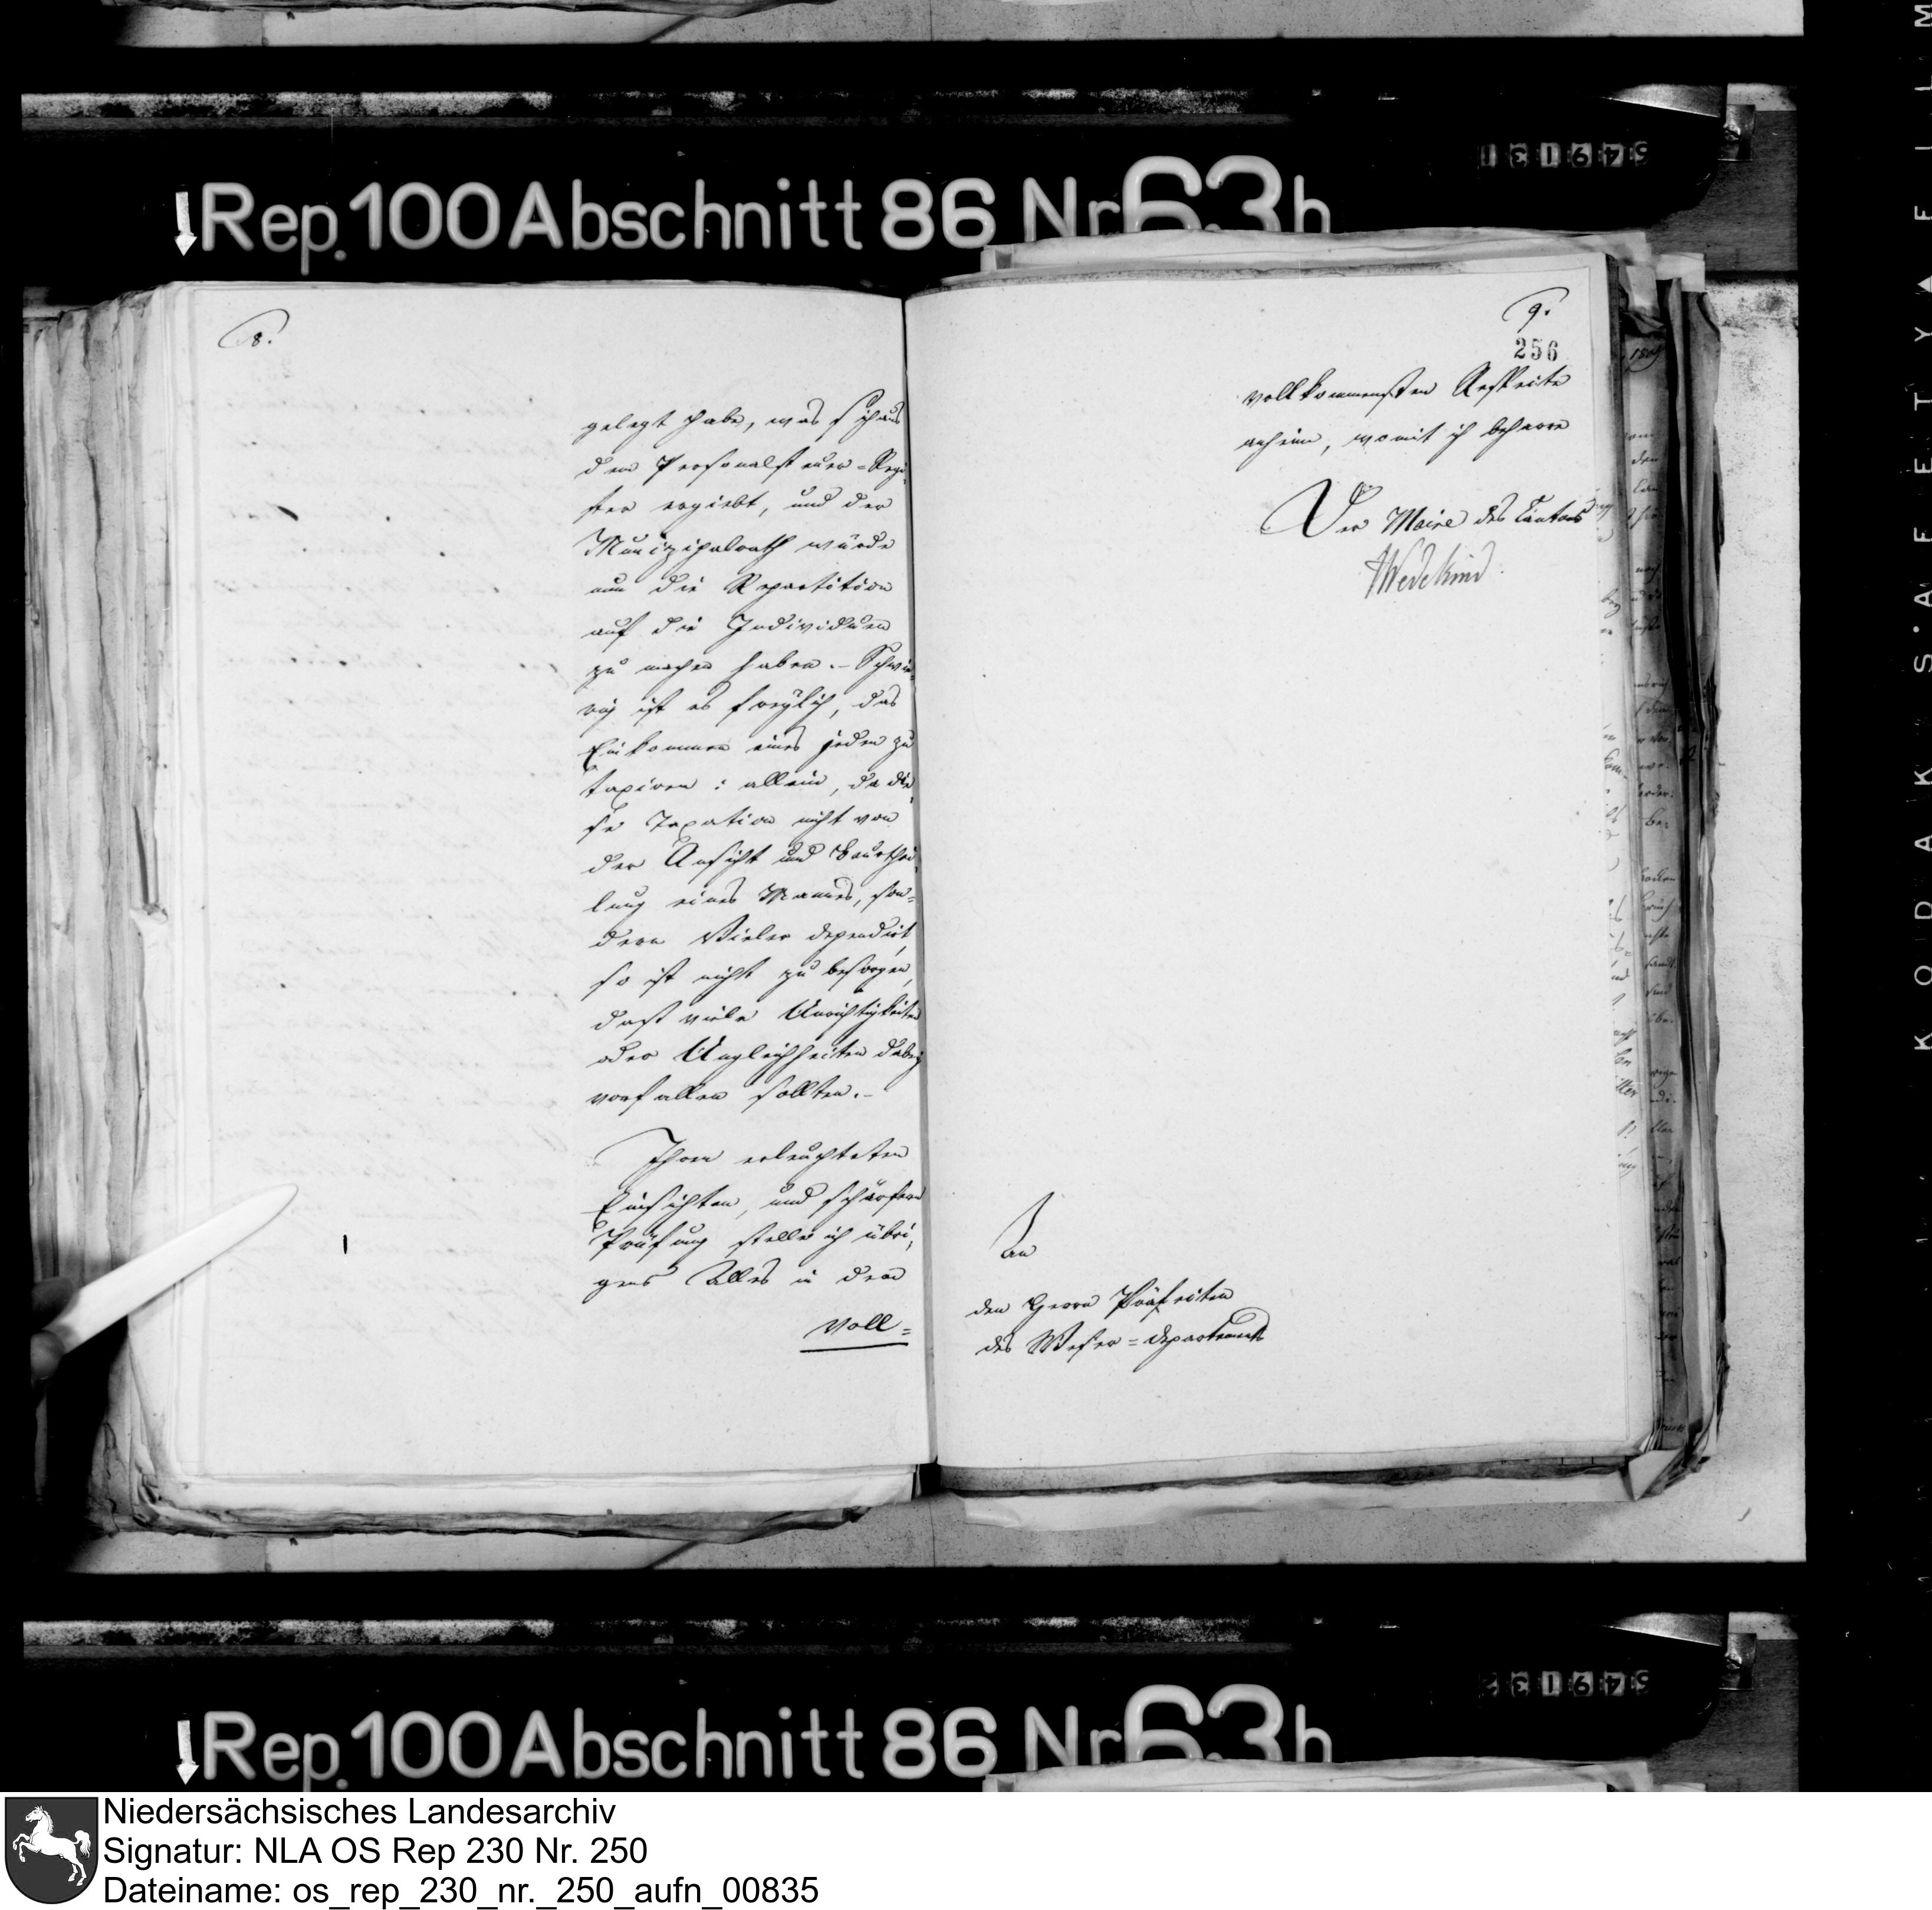 549131
Rep. 100 Abschnitt 86 Nr 63 h
8.
gelegt habe, was sich aus
dem Personalsteuer-Regi-
ster ergiebt, und der
Munizipalrath würde
nun die Repartition
auf die Individuen
zu machen haben. - Schwie-
rig ist es freylich, das
Einkommen eines jeden zu
taxiren: allein, da die-
se Taxation nicht von
der Ansicht und Beurthei-
lung eines Mannes, son-
dern Vieler dependirt,
so ist nicht zu besorgen,
dast viele Unrichtigkeiten
oder Ungleichheiten dabey
vorfallen sollten. -
Ihren erleuchteten
Einsichten, und schärfern
Prüfung stelle ich übri-
gens Alles in dem
voll=
9.
256
vollkommensten Respecte
anheim, womit ich beharre
Der Maire des Cantons
Wedekind.
An
den Herrn Präfecten
des Weser=departements
549132
Rep. 100 Abschnitt 86 Nr 63 h
KODAK SAFETY FILM
Niedersächsisches Landesarchiv
Signatur: NLA OS Rep 230 Nr. 250
Dateiname: os_rep_230_nr._250_aufn_00835